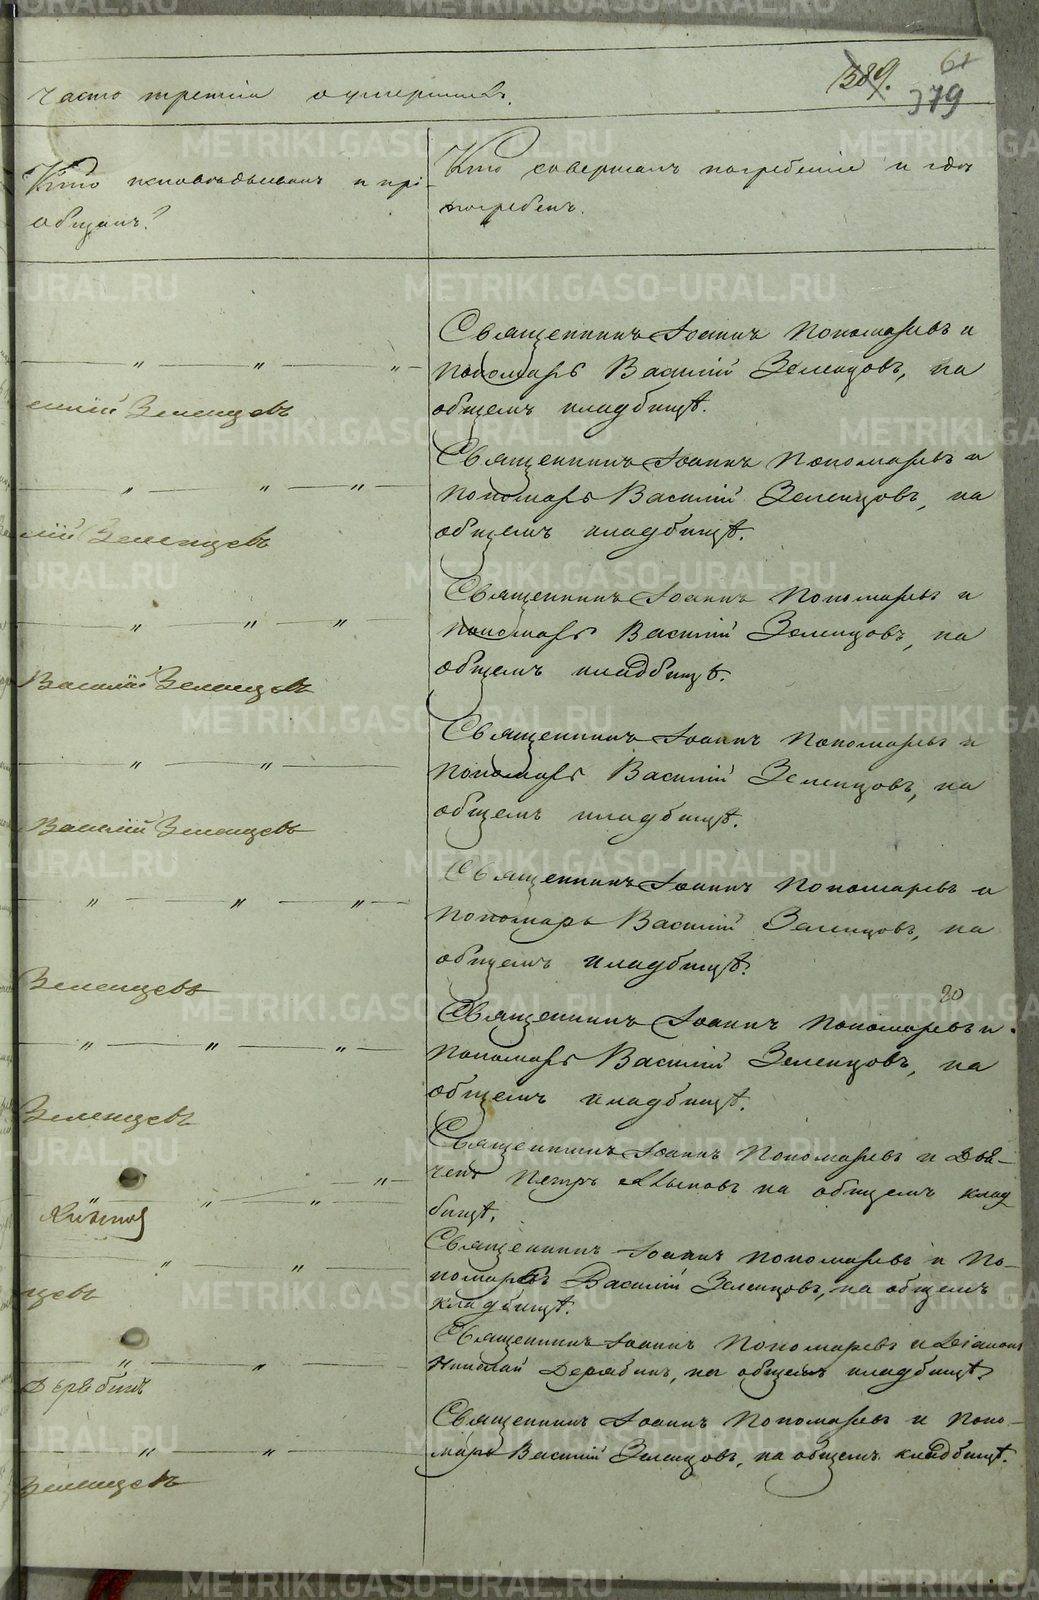 часть третія о умершихъ.
389.
61
379
Кто исповѣдывалъ и прі-
общалъ?
Кто совершалъ погребеніе и гдѣ
погребенъ.
Священникъ Іоаннъ Пономаревъ и
пономарь Василій Зеленцовъ, на
общемъ кладбищѣ.
Зеленцевъ
Священникъ Іоаннъ Пономаревъ и
пономарь Василій Зеленцовъ, на
общемъ кладбищѣ.
лій Зеленцевъ
Священникъ Іоаннъ Пономаревъ и
пономарь Василій Зеленцовъ, на
общемъ кладбищѣ.
Василій Зеленцевъ
Священникъ Іоаннъ Пономаревъ и
пономарь Василій Зеленцовъ, на
общемъ кладбищѣ.
Василій Зеленцевъ
Священникъ Іоаннъ Пономаревъ и
пономарь Василій Зеленцовъ, на
общемъ кладбищѣ.
Зеленцевъ
20
Священникъ Іоаннъ Пономаревъ и
пономарь Василій Зеленцовъ, на
общемъ кладбищѣ.
Зеленцевъ
Священникъ Іоаннъ Пономаревъ и Дья-
чекъ Петръ на общемъ клад
бищѣ.
Священникъ Іоаннъ Пономаревъ и По-
номарь Василій Зеленцовъ, на общемъ
кладбищѣ.
цевъ
Священникъ Іоаннъ Пономаревъ и Діаконъ
Николай Дерябинъ, на общемъ кладбищѣ.
Дерябинъ
Священникъ Іоаннъ Пономаревъ и Поно-
марь Василій Зеленцовъ, на общемъ кладбищѣ.
Зеленцевъ
METRIKI.GASO-URAL.RU